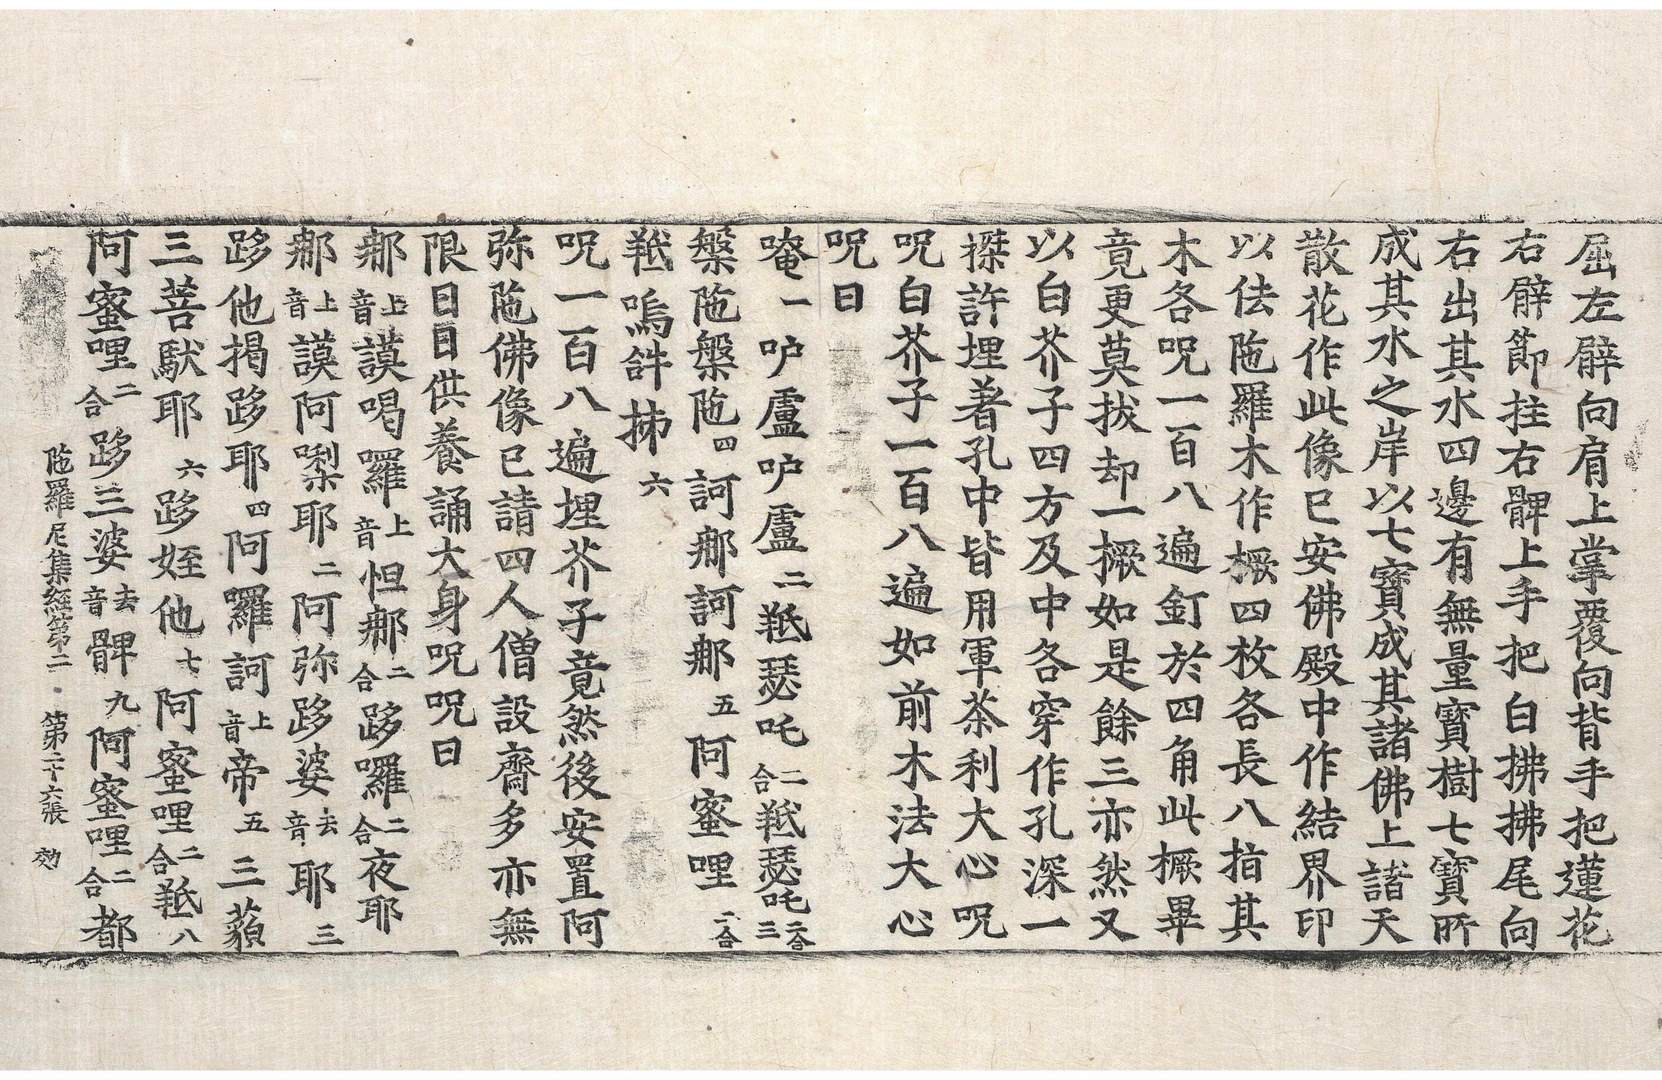 屈左臂向肩上掌覆向背手把蓮花
右臂節拄右髀上手把白拂拂尾向
右出其水四邊有無量寶樹七寶所
成其水之岸以七寶成其諸佛上諸天
散花作此像已安佛殿中作結界印
以佉陁羅木作橛四枚各長八指其
木各呪一百八遍釘於四角此橛畢
竟更莫拔却一橛如是餘三亦然又
以白芥子四方及中各穿作孔深一
搩許埋著孔中皆用軍茶利大心呪
呪白芥子一百八遍如前木法大心
呪曰
唵一㕑盧㕑盧二羝瑟吒二合羝瑟吒二合三
槃陁槃陁四訶那訶那五阿蜜哩二合
羝嗚𤙖抪六
呪一百八遍埋芥子竟然後安置阿
弥陁佛像已請四人僧設齋多亦無
限日日供養誦大身呪呪曰
那上音謨喝囉上音怛那二合跢囉二合夜耶
那上音謨阿㗚耶二阿弥跢婆去音耶三
跢他揭跢耶四阿囉訶上音帝五三藐
三菩馱耶六跢姪他七阿蜜哩二合羝八
阿蜜哩二合跢三婆去音髀九阿蜜哩二合都
陁羅尼集經第二　第二十六張　効